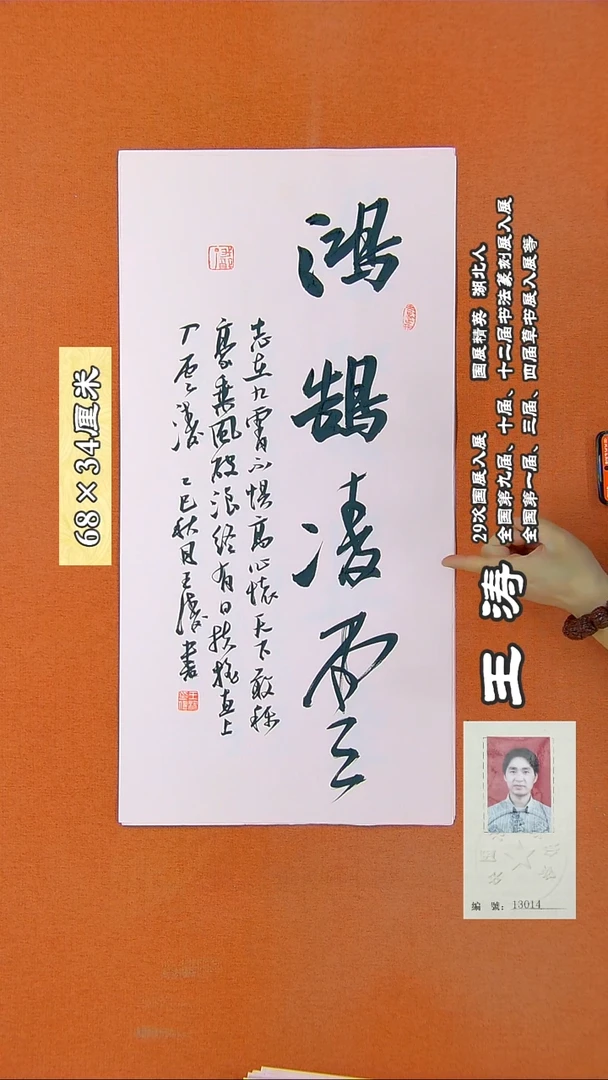 鴻鵠凌雲
志在九霄不惧高心懷天下敢称
豪乘風破浪终有日扶摇直上
万雲濤 乙巳秋月王濤書
68×34厘米
王涛
29次国展入展 国展精英 湖北人
全国第九届、十届、十二届书法篆刻展入展
全国第一届、三届、四届草书展入展等
編 號：13014